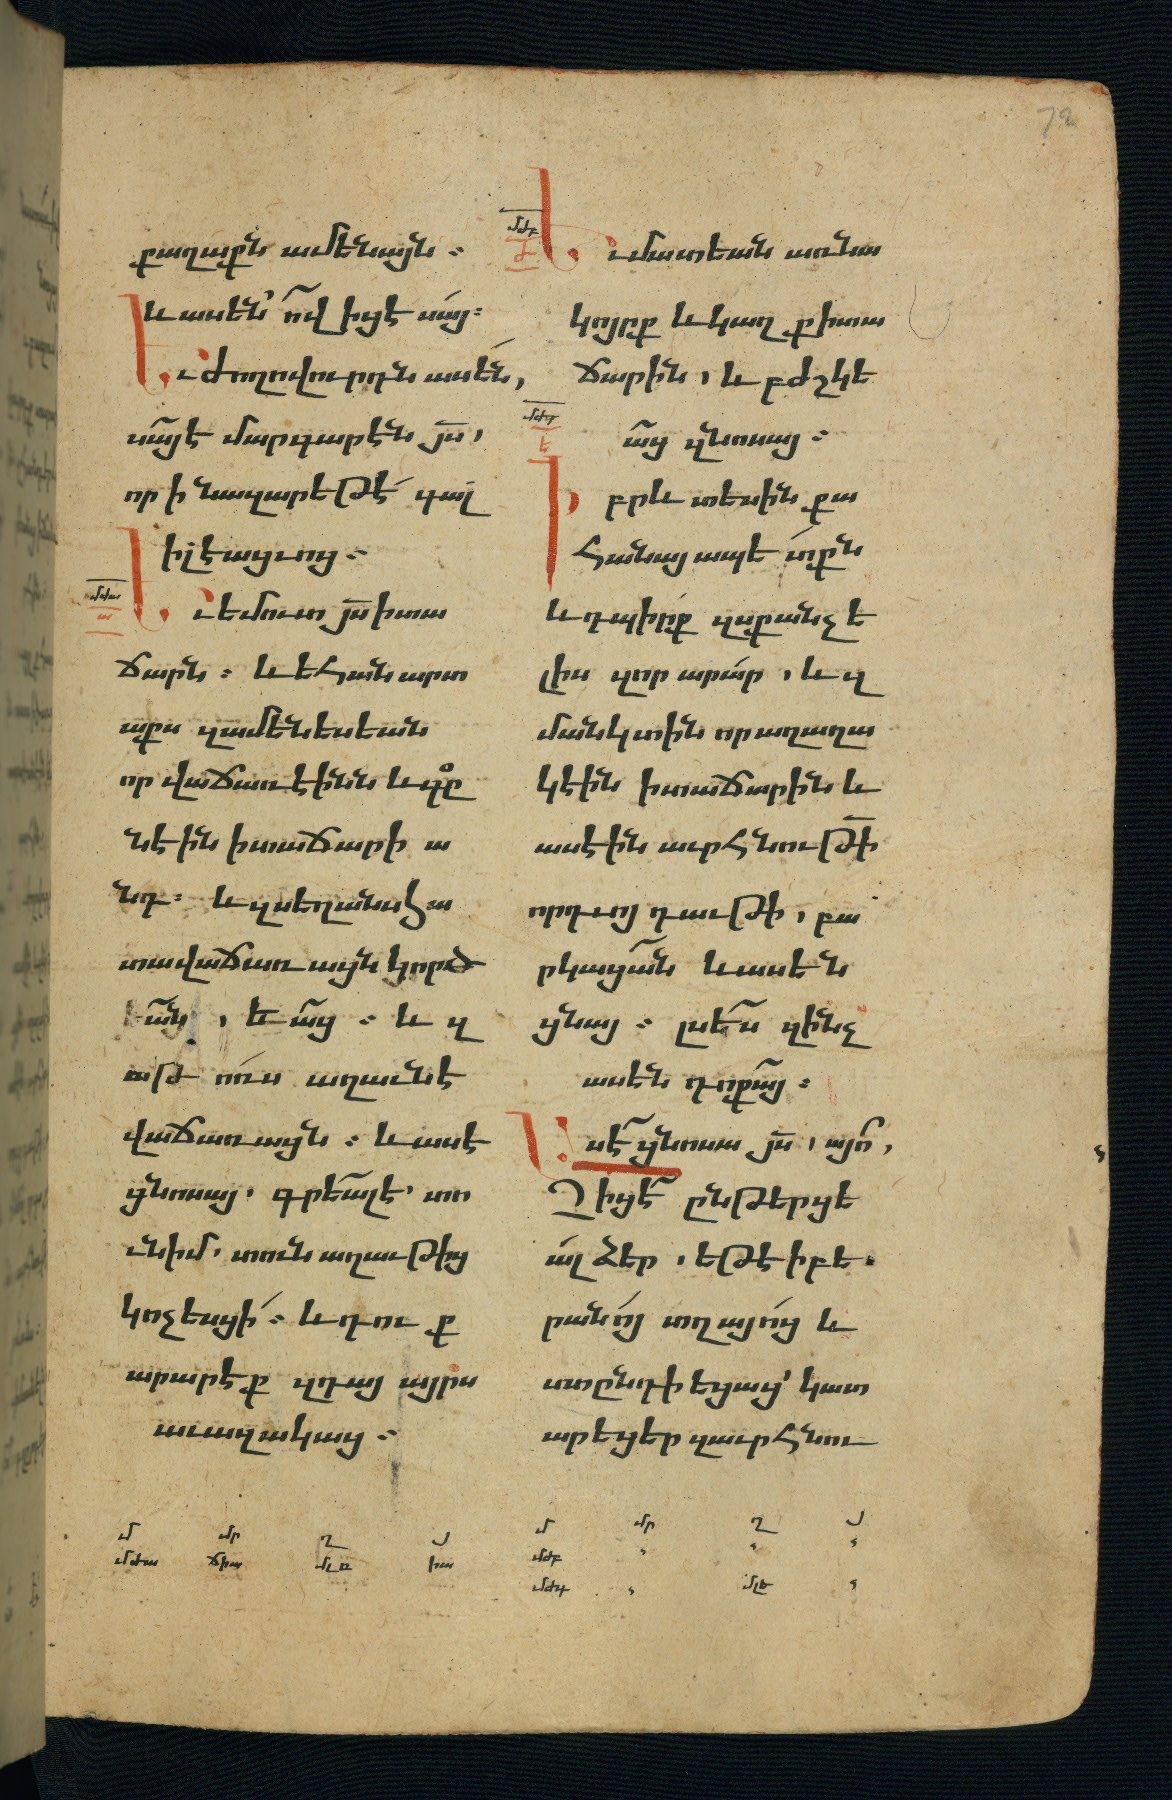 72
քաղաքն ամենայն ։
և ասեն՝ ո՞վ իցէ սա՛յ։
Ւ ժողովուրդն ասեն,
սա՛յ է մարգարէն յս ,
որ ի նազարեթէ՛ գալ
իլէացւոց ։
մժա
Ւ եմուտ յս ի տա
ճարն ։ և եհան արտ
աքս զամենեսեան
որ վաճառէինն և գը
նէին ի տաճարի ա
նդ ։ և զսեղանս հա
տավաճառացն կործ
ան , եւ ած ։ և զ
աթ ոռս աղաւնէ
վաճառացն ։ և ասէ
ցնոսայ , գրեալ է , տո
ւն իմ , տուն աղաւթից
կոչեսցի՛ ։ և դու ք
արարէք զդայ այրս
աւազակաց ։
մժբ
Ժ
Ւ մատեան առ նա
կոյրք և կաղք ի տա
ճարին , և բժշկե
աց զնոսայ ։
մժգ
ե
Ի բրև տեսին քա
հանայապե տքն
և դպիրք զսքանչ ե
լիս զոր արար , և զ
մանկտին որ աղաղա
կէին ի տաճարին և
ասէին աւրհնութի
որդւոյ դաւթի , բա
րկացան և ասեն
ցնայ ։ լսե՞ս զինչ
ասեն դոքայ ։
Ա սէ ցնոսա յս , այո՛ ,
Չիցէ՞ ընթերցե
ալ ձեր , եթէ ի բե
րանո՛յ տղայո՛ց և
ստընդիեցաց՝ կատ
արեցեր զաւրհնու
մ մր ղ յ
մժա ճիա մլռ իա
մ մր ղ յ
մժբ
մժգ մլե